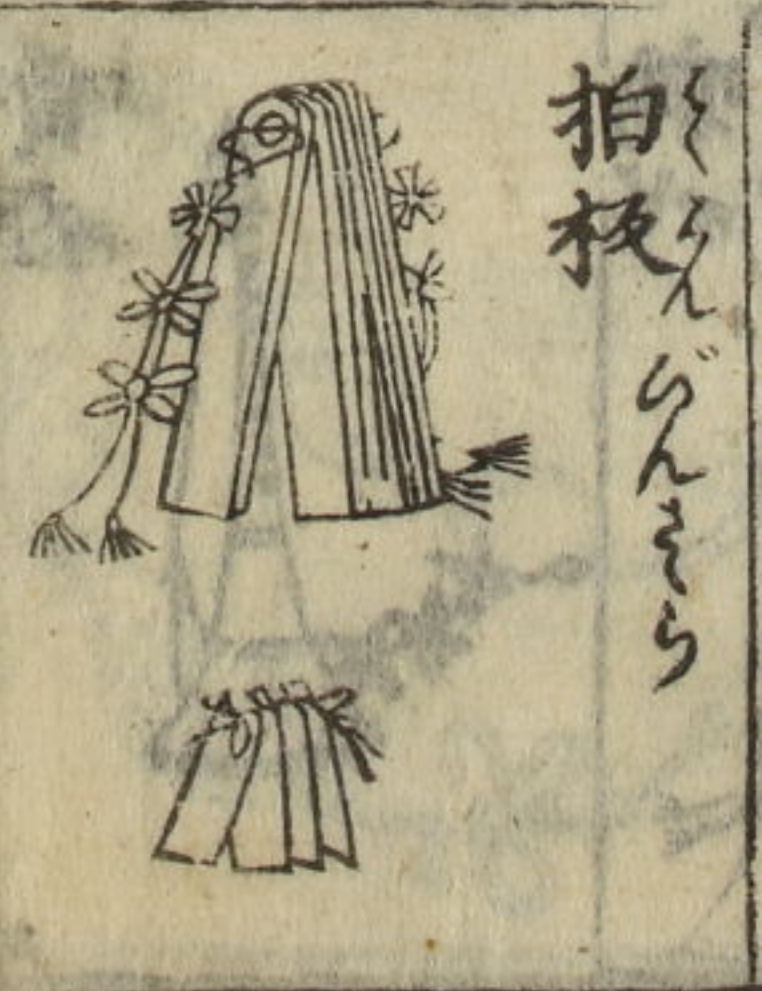 拍板
はくはん
びんざさら